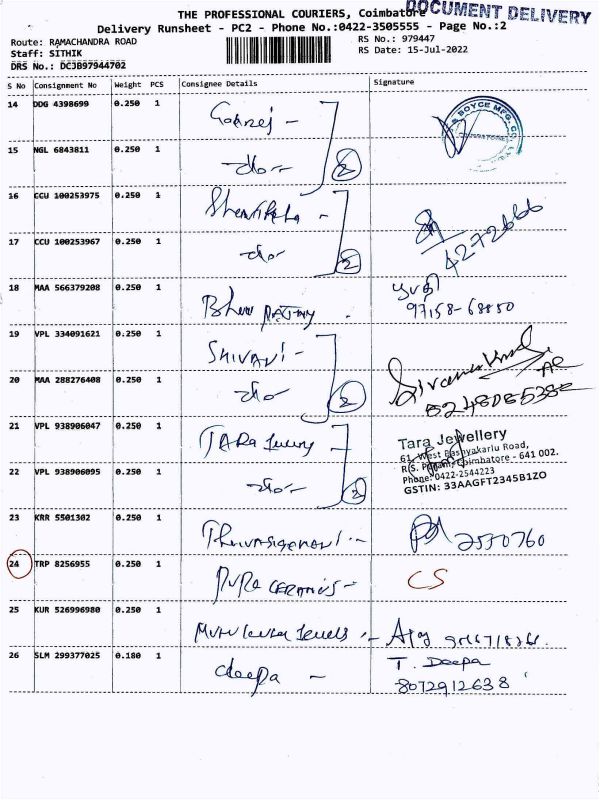 THE PROFESSIONAL COURIERS, Coimbatore
DOCUMENT DELIVERY
Delivery Runsheet - PC2 - Phone No.:0422-3505555 - Page No.:2
Route: RAMACHANDRA ROAD
RS No.: 979447
Staff: SITHIK
RS Date: 15-Jul-2022
DRS No.: DCJB97944702
S No Consignment No Weight PCS Consignee Details Signature
14 DDG 4398699 0.250 1 Godrej -
BOYCE MFG. CO.
15 NGL 6843811 0.250 1 -do- 2
16 CCU 100253975 0.250 1
17 CCU 100253967 0.250 1 -do- 2
4272666
18 MAA 566379208 0.250 1
97158-68850
19 VPL 334091621 0.250 1 SHIVANI -
20 MAA 288276408 0.250 1 -do- 2
21 VPL 938906047 0.250 1 TARA Luxury -
Tara Jewellery
61, West Bashyakarlu Road,
R.S. Puram, Coimbatore - 641 002.
Phone: 0422-2544223
GSTIN: 33AAGFT2345B1ZO
22 VPL 938906095 0.250 1 -do- 2
23 KRR 5501302 0.250 1
2530760
24 TRP 8256955 0.250 1 PURA CERAMICS - CS
25 KUR 526996980 0.250 1
26 SLM 299377025 0.180 1 deepa - T. Deepa
8072912638